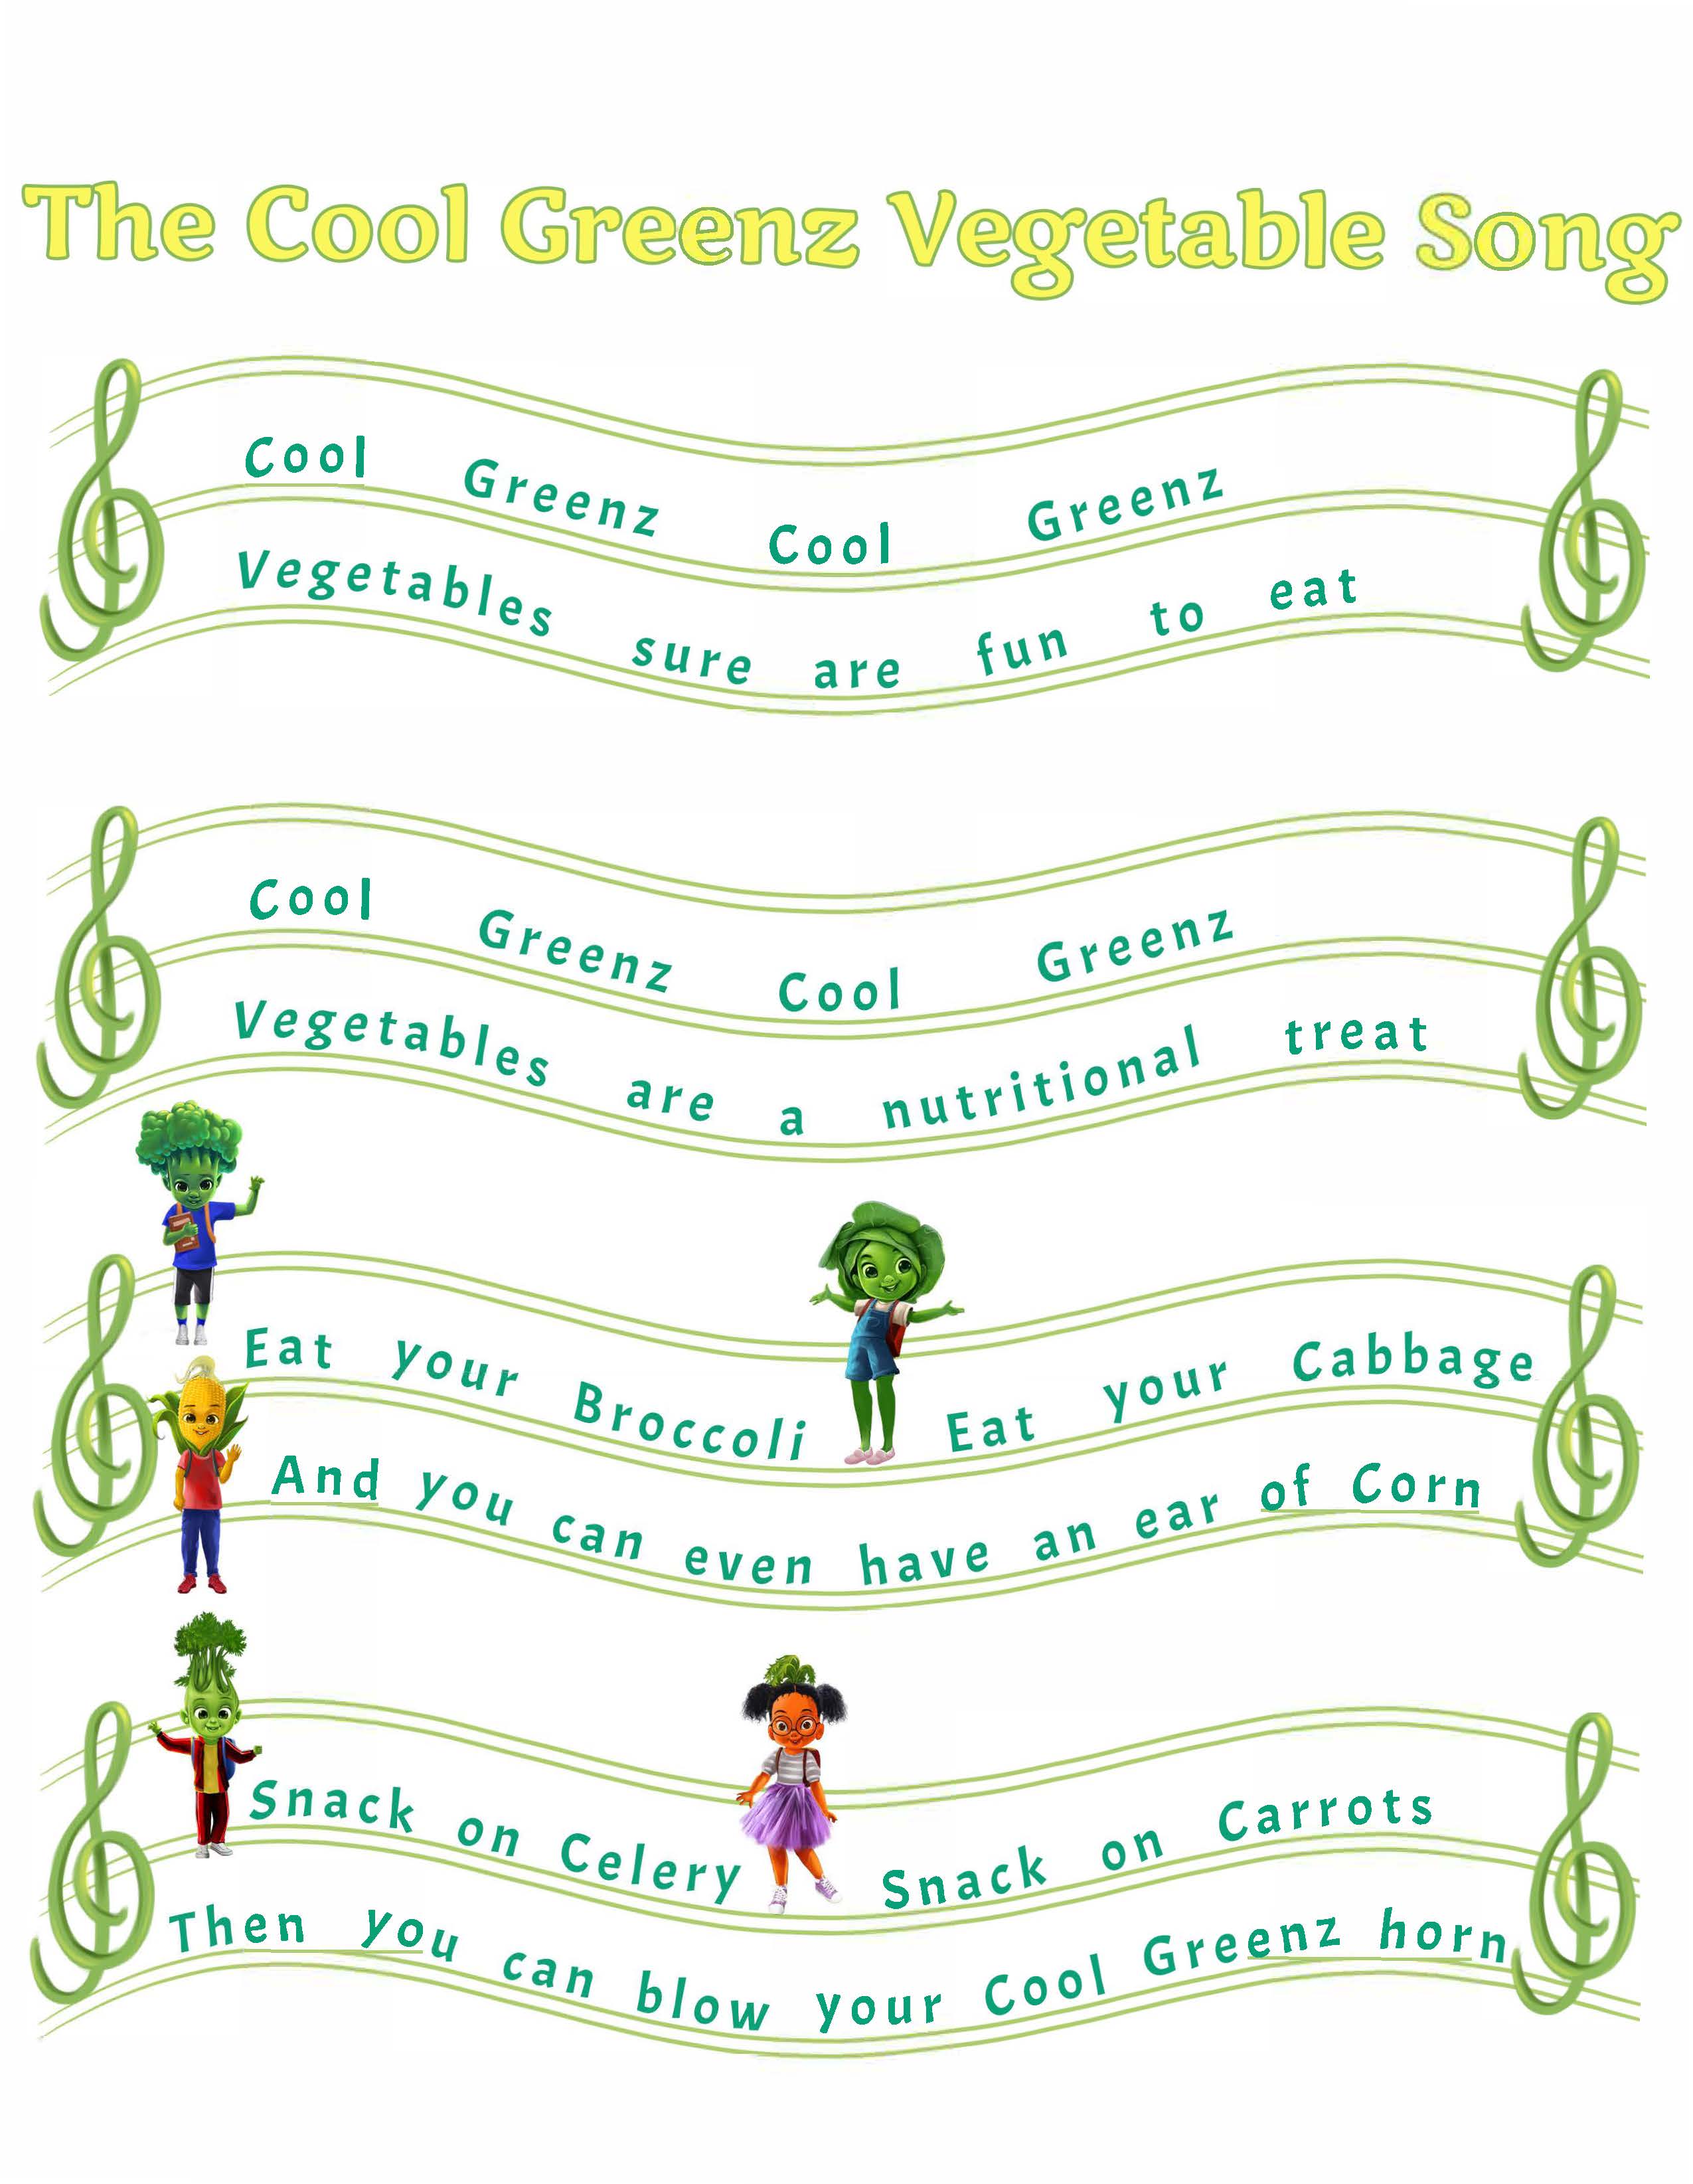 The Cool Greenz Vegetable Song
Cool Greenz Cool Greenz
Vegetables sure are fun to eat
Cool Greenz Cool Greenz
Vegetables are a nutritional treat
Eat your Broccoli Eat your Cabbage
And you can even have an ear of Corn
Snack on Celery Snack on Carrots
Then you can blow your Cool Greenz horn